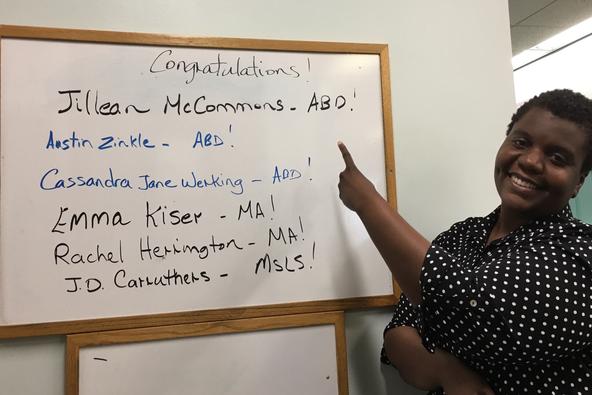 Congratulations!
Jillean McCommons - ABD!
Austin Zinkle - ABD!
Cassandra Jane Werking - ABD!
Emma Kiser - MA!
Rachel Herrington - MA!
J.D. Carruthers - MSLS!